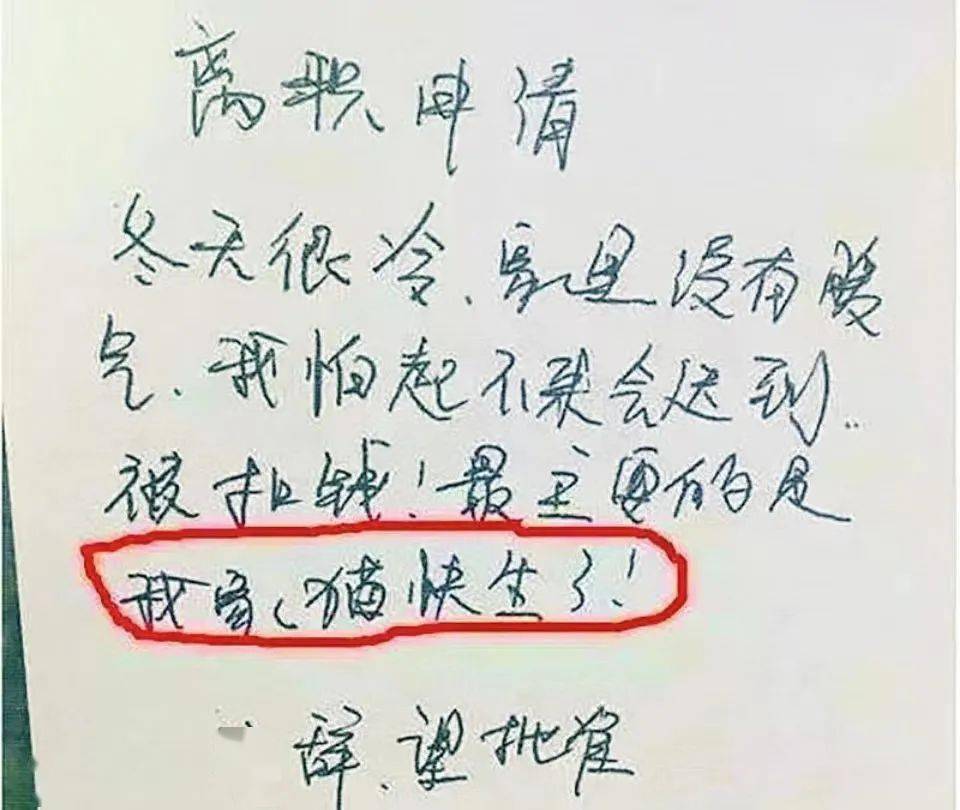 离职申请
冬天很冷、家里没有暖
气、我怕起不来会迟到..
被扣钱！最主要的是
我家、猫快生了！
辞、望批准